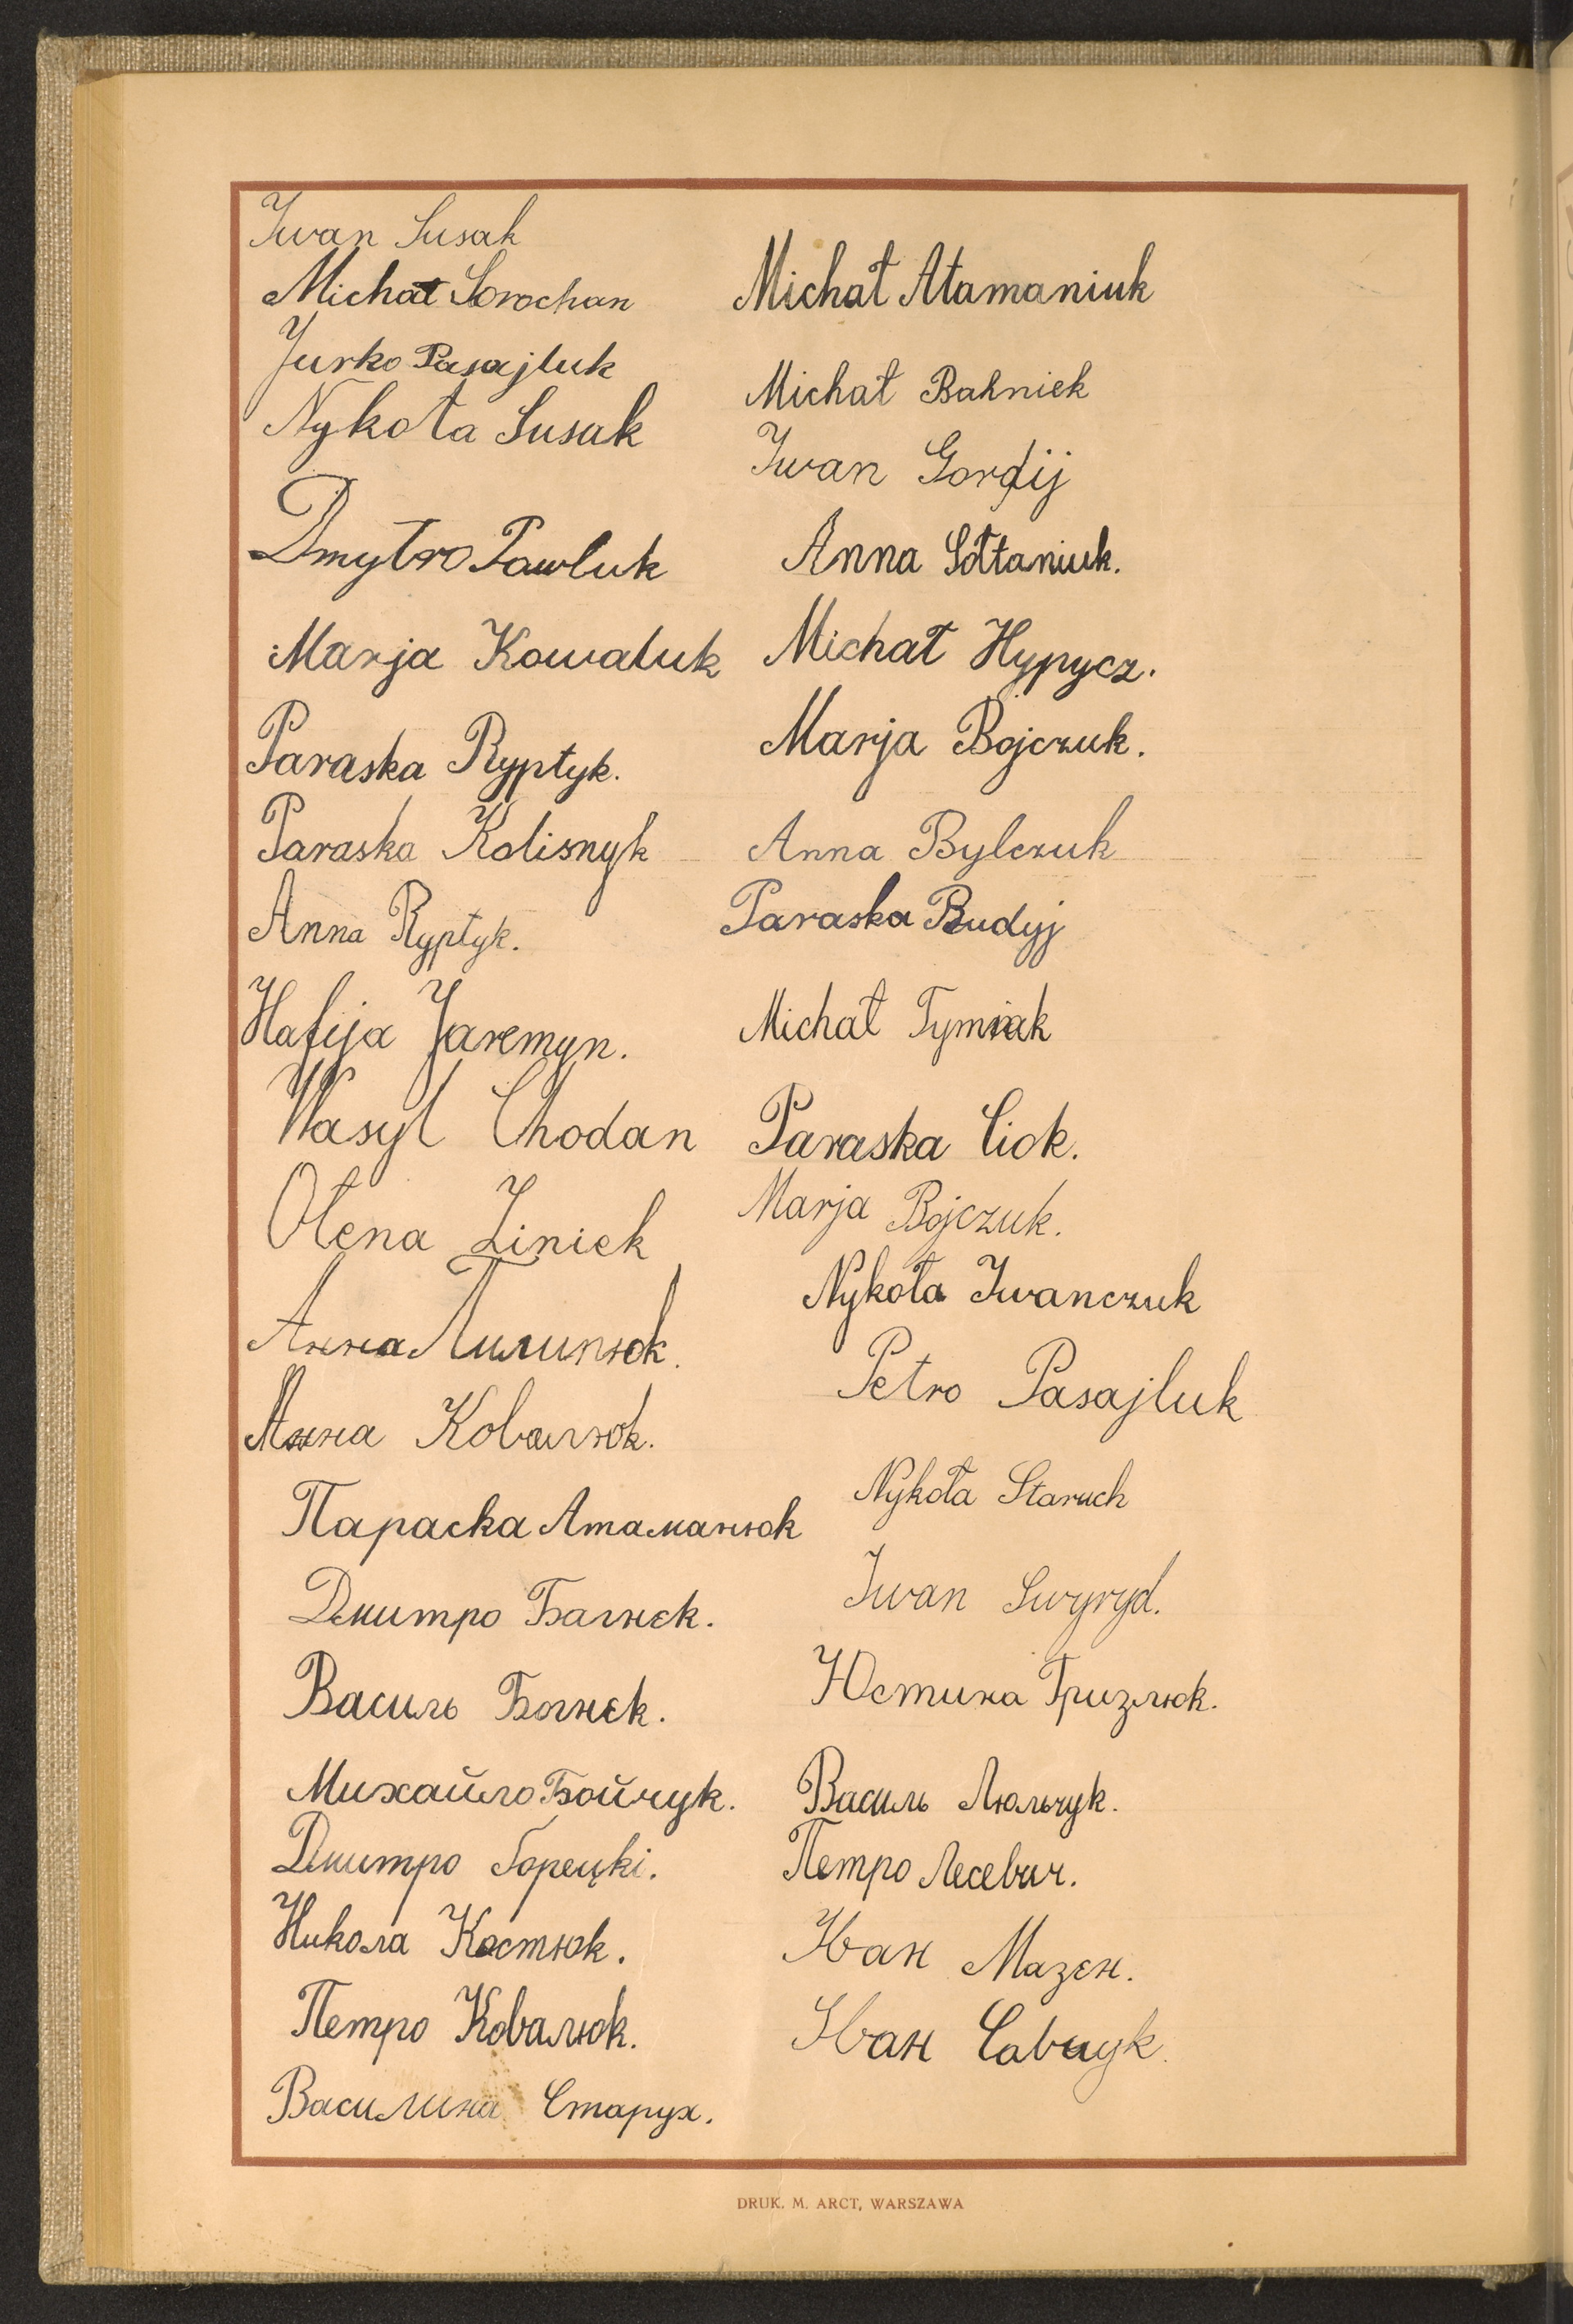 Iwan Susak
Michał Sorochan
Jurko Pasajluk
Nykoła Susak
Dmytro Pawluk
Marja Kowaluk
Paraska Ryptyk.
Paraska Kolisnyk
Anna Ryptyk.
Hafija Jaremyn.
Wasyl Chodan
Ołena Ziniek
Анна Пилипюк.
Анна Ковалюк.
Параска Атаманюк
Дмитро Багнєк.
Василь Богнєк.
Михайло Бойчук.
Дмитро Борецкі.
Никола Костюк.
Петро Ковалюк.
Василина Старух.
Michał Atamaniuk
Michał Bahniek
Iwan Gordij
Anna Sołtaniuk.
Michał Hypycz.
Marja Bojczuk.
Anna Bylczuk
Paraska Budyj
Michał Tymiak
Paraska Ciok.
Marja Bojczuk.
Nykoła Iwanczuk
Petro Pasajluk
Nykoła Staruch
Iwan Swyryd.
Юстина Гризлюк.
Василь Люльчук.
Петро Лесевич.
Іван Мазєн.
Іван Савчук.
DRUK. M. ARCT, WARSZAWA